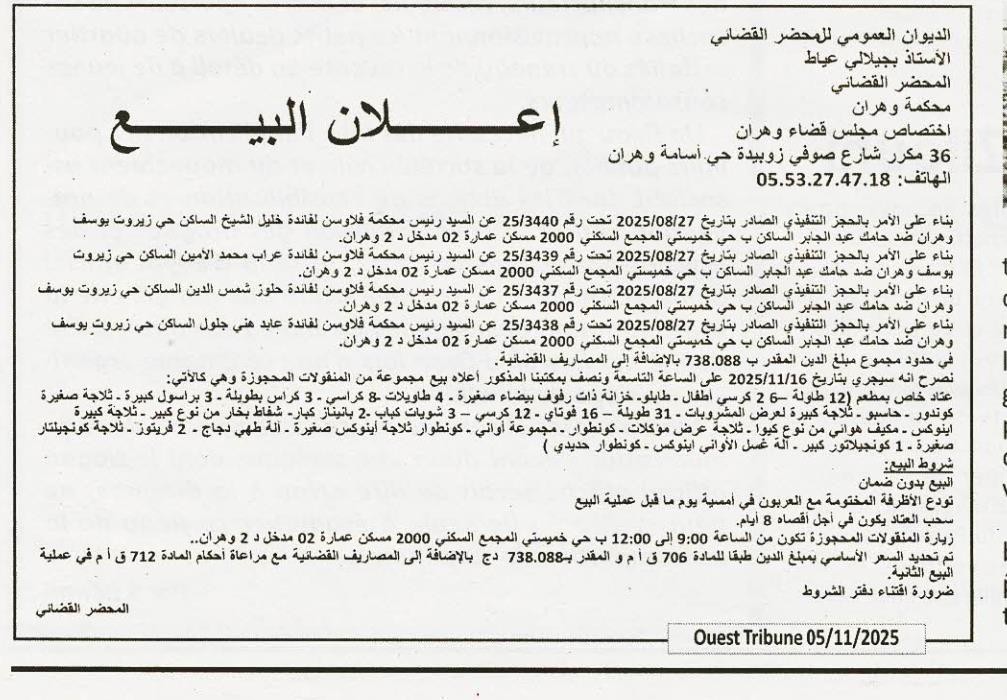 الديوان العمومي للمحضر القضائي
الأستاذ بجيلالي عياط
المحضر القضائي
محكمة وهران
اختصاص مجلس قضاء وهران
36 مكرر شارع صوفي زوبيدة حي أسامة وهران
الهاتف: 05.53.27.47.18
إعـــلان البيـــع
بناء على الأمر بالحجز التنفيذي الصادر بتاريخ 2025/08/27 تحت رقم 25/3440 عن السيد رئيس محكمة فلاوسن لفائدة خليل الشيخ الساكن حي زيروت يوسف
وهران ضد حامك عبد الجابر الساكن ب حي خميستي المجمع السكني 2000 مسكن عمارة 02 مدخل د 2 وهران.
بناء على الأمر بالحجز التنفيذي الصادر بتاريخ 2025/08/27 تحت رقم 25/3439 عن السيد رئيس محكمة فلاوسن لفائدة عراب محمد الامين الساكن حي زيروت
يوسف وهران ضد حامك عبد الجابر الساكن ب حي خميستي المجمع السكني 2000 مسكن عمارة 02 مدخل د 2 وهران.
بناء على الأمر بالحجز التنفيذي الصادر بتاريخ 2025/08/27 تحت رقم 25/3437 عن السيد رئيس محكمة فلاوسن لفائدة حلوز شمس الدين الساكن حي زيروت يوسف
وهران ضد حامك عبد الجابر الساكن ب حي خميستي المجمع السكني 2000 مسكن عمارة 02 مدخل د 2 وهران.
بناء على الأمر بالحجز التنفيذي الصادر بتاريخ 2025/08/27 تحت رقم 25/3438 عن السيد رئيس محكمة فلاوسن لفائدة عابد هني جلول الساكن حي زيروت يوسف
وهران ضد حامك عبد الجابر الساكن ب حي خميستي المجمع السكني 2000 مسكن عمارة 02 مدخل د 2 وهران.
في حدود مجموع مبلغ الدين المقدر ب 738.088 بالإضافة إلى المصاريف القضائية.
نصرح أنه سيجري بتاريخ 2025/11/16 على الساعة التاسعة ونصف بمكتبنا المذكور أعلاه بيع مجموعة من المنقولات المحجوزة وهي كالآتي:
عتاد خاص بمطعم (12 طاولة –6 2 كرسي أطفال - طابلو- خزانة ذات رفوف بيضاء صغيرة - 4 طاويلات -8 كراسي - 3 كراس بطويلة - 3 براسول كبيرة - ثلاجة صغيرة
كوندور - حاسبو - ثلاجة كبيرة لعرض المشروبات - 31 طويلة – 16 فوتاي - 12 كرسي – 3 شويات كباب -2 بانيناز كبار- شفاط بخار من نوع كبير - ثلاجة كبيرة
اينوكس - مكيف هوائي من نوع كيوا - ثلاجة عرض مؤكلات - كونطوار - مجموعة أواني - كونطوار ثلاجة أينوكس صغيرة - آلة طهي دجاج - 2 فريتوز - ثلاجة كونجيلتار
صغيرة - 1 كونجيلاتور كبير - آلة غسل الأواني اينوكس - كونطوار حديدي )
شروط البيع:
البيع بدون ضمان
تودع الأظرفة المختومة مع العربون في أمسية يوم ما قبل عملية البيع
سحب العتاد يكون في أجل أقصاه 8 أيام.
زيارة المنقولات المحجوزة تكون من الساعة 9:00 إلى 12:00 ب حي خميستي المجمع السكني 2000 مسكن عمارة 02 مدخل د 2 وهران..
تم تحديد السعر الأساسي بمبلغ الدين طبقا للمادة 706 ق أ م و المقدر بـ738.088 دج بالإضافة إلى المصاريف القضائية مع مراعاة أحكام المادة 712 ق أ م في عملية
البيع الثانية.
ضرورة اقتناء دفتر الشروط
المحضر القضائي
Ouest Tribune 05/11/2025